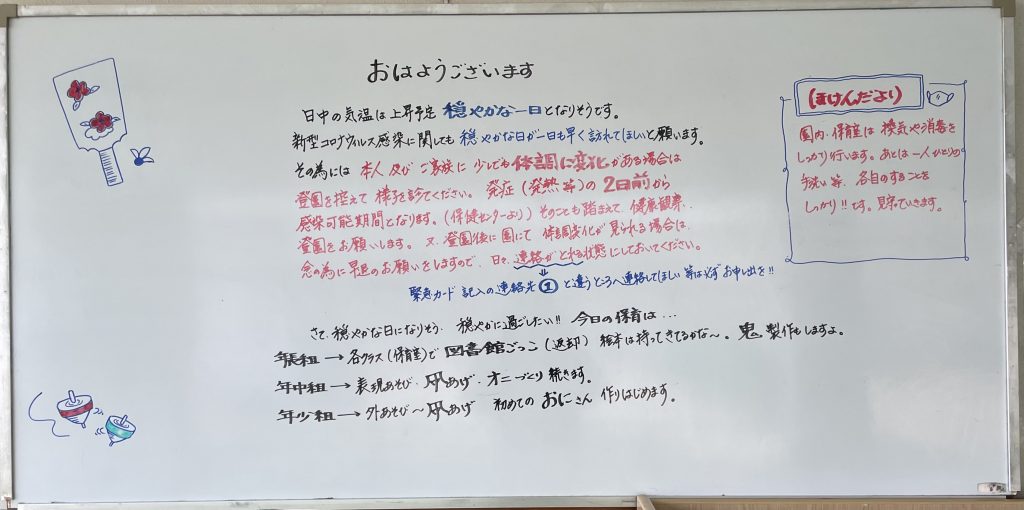 おはようございます
日中の気温は上昇予定 穏やかな一日となりそうです。
新型コロナウィルス感染に関しても 穏やかな日が一日も早く訪れてほしいと願います。
その為には 本人 及び ご家族に 少しでも体調に変化がある場合は
登園を控えて 様子を診てください。 発症(発熱 等)の 2日前から
感染可能期間となります。(保健センターより) そのことも踏まえて、健康観察、
登園をお願いします。 又、登園後に 園にて 体調変化が 見られる場合は、
念の為に早退のお願いをしますので、 日々、連絡がとれる状態にしておいてください。
緊急カード 記入の連絡先 ① と違うところへ連絡してほしい 等は必ず お申し出を!!
さて、穏やかな日になりそう、 穏やかに過ごしたい!! 今日の保育は…
年長組 → 各クラス(保育室)で 図書館ごっこ(返却) 絵本は持ってきてるかな〜。鬼 製作もしますよ。
年中組 → 表現あそび、凧あげ、オニづくり 続きます。
年少組 → 外あそび〜凧あげ 初めての おにさん 作りはじめます。
ほけんだより
園内・保育室は 換気や消毒を
しっかり行います。あとは一人ひとりの
手洗い等、各自のすることを
しっかり!!です。見ていきます。